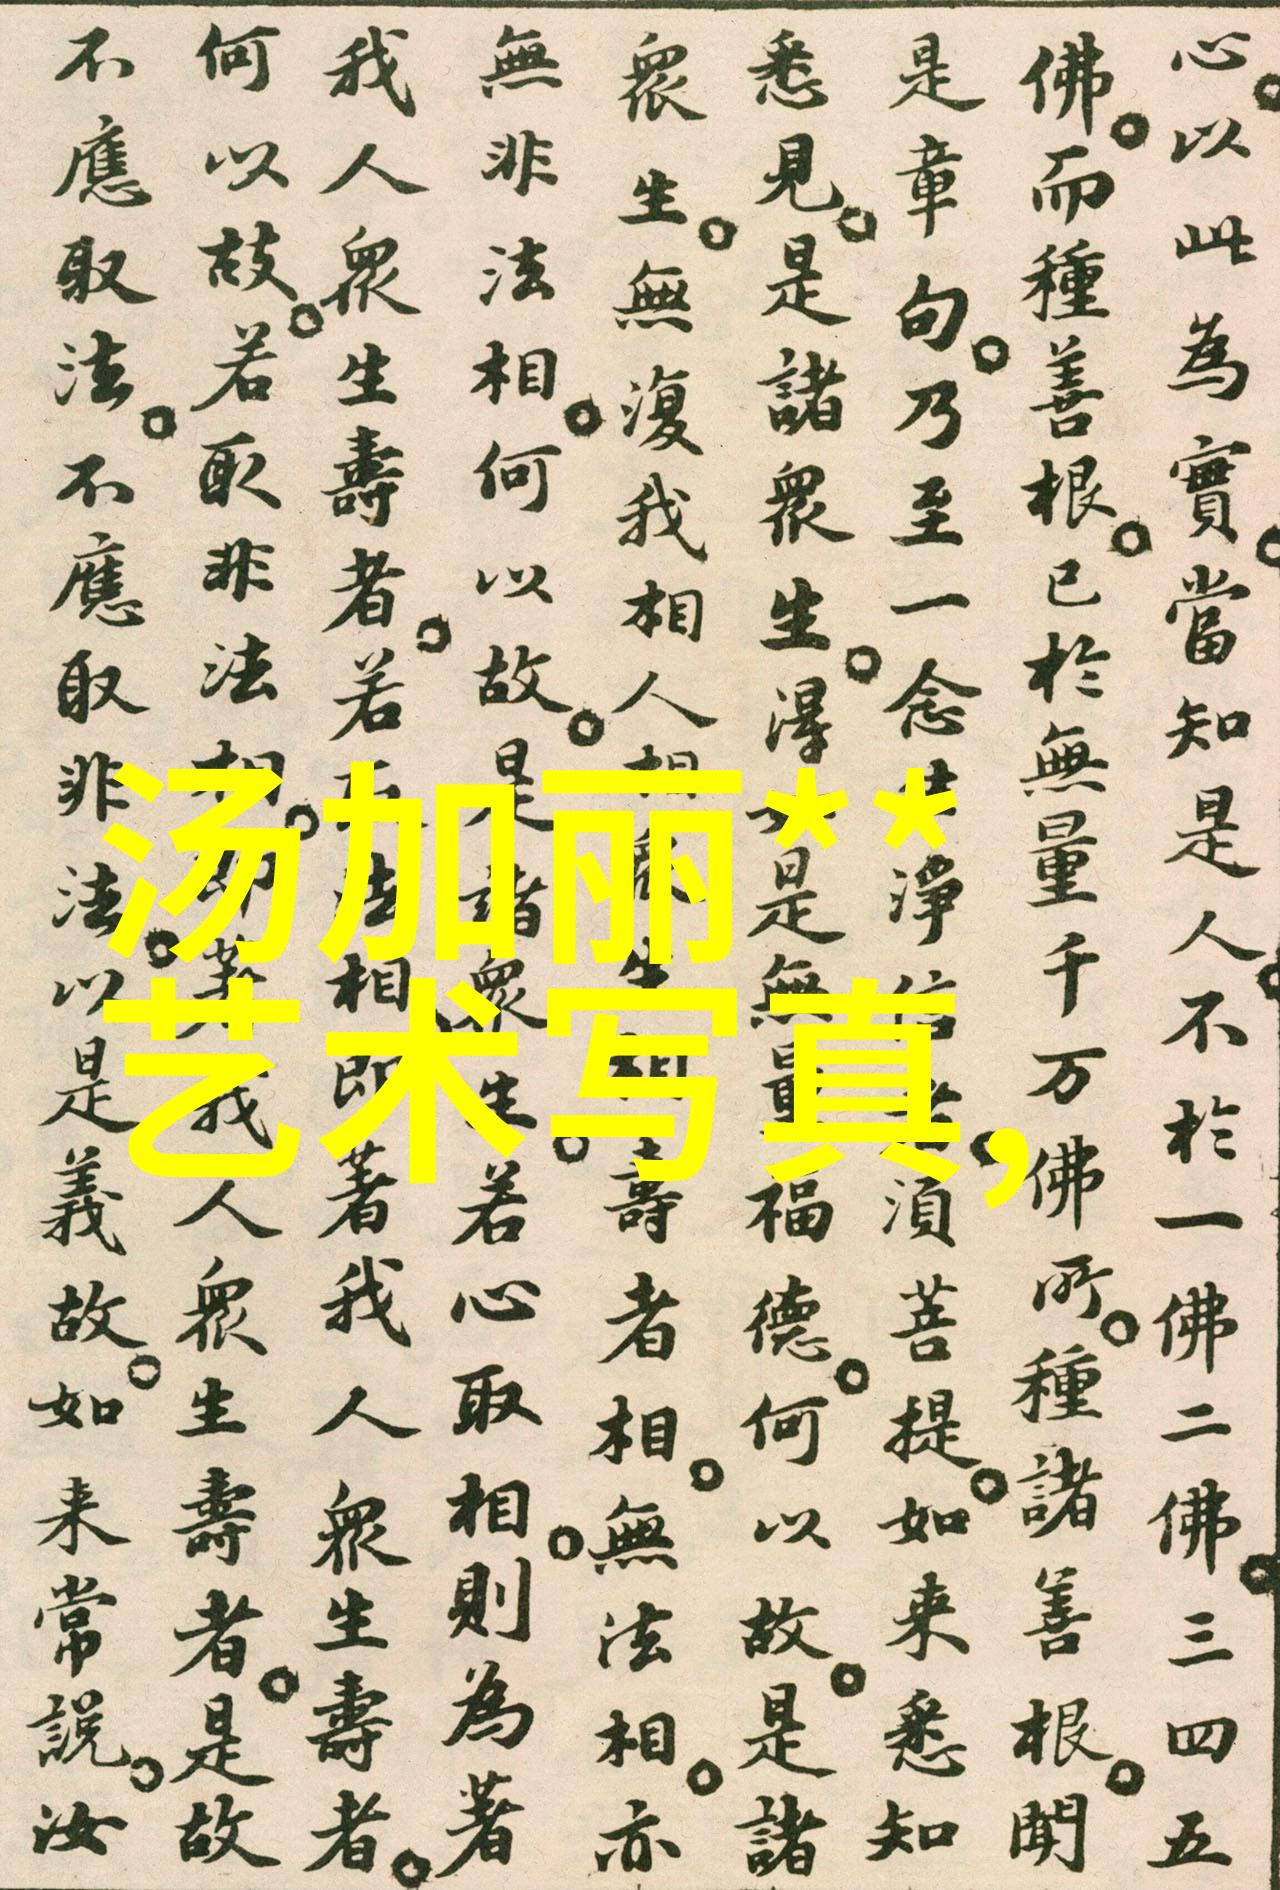 心以此為實當知是人不於一佛二佛三四五
佛而種善根已於無量千万佛所種諸善根聞
是章句乃至一念淨信者須菩提如来悉知
悉見是諸眾生得是無量福德何以故是諸
眾生無復我相人相眾生相壽者相無法相亦
無非法相何以故是諸眾生若心取相則為著
我人眾生壽者若法相即著我人眾生壽者
何以故若取非法相即著我人眾生壽者是故
不應取法不應取非法以是義故如来常説汝
汤加丽**
艺术写真,